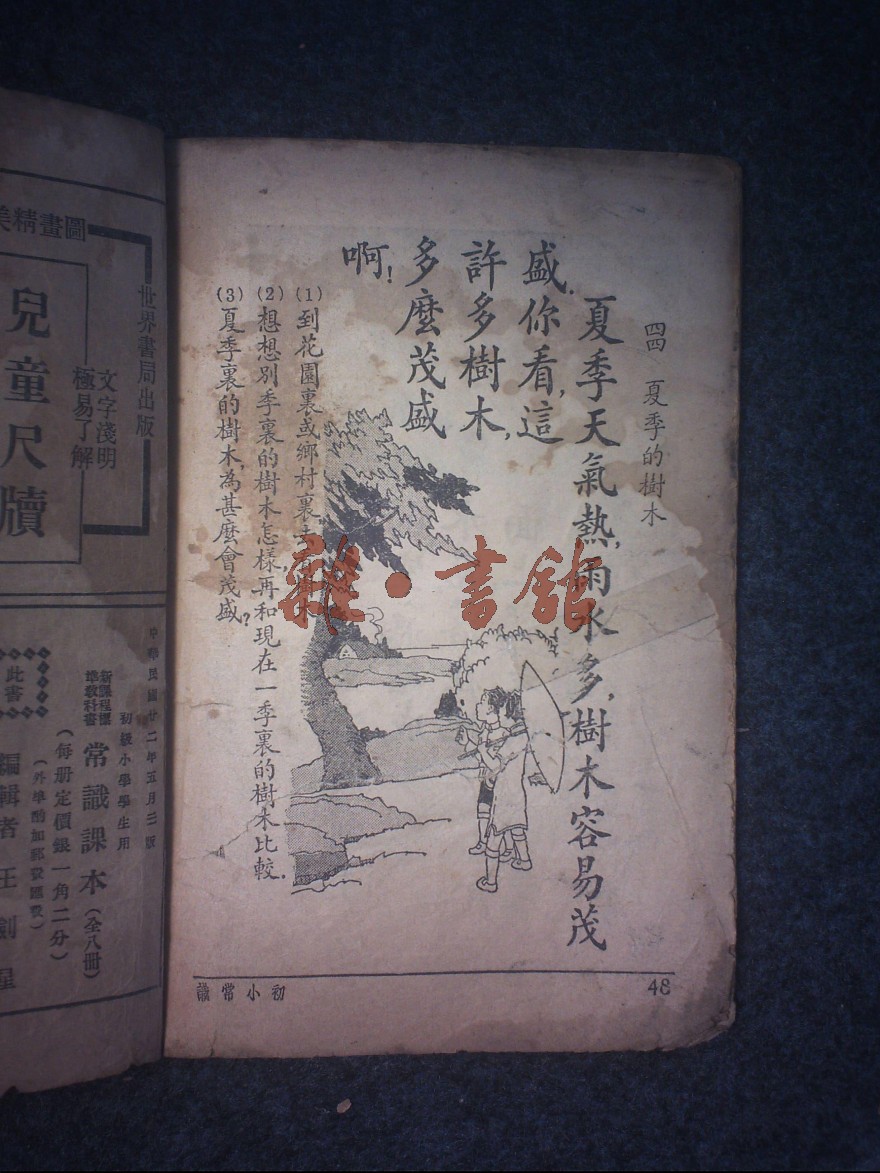 四四 夏季的樹木
夏季天氣熱,雨水多,樹木容易茂
盛.你看,這
許多樹木,
多麼茂盛
啊!
(1)到花園裏或鄉村裏去看樹木.
(2)想想別季裏的樹木怎樣,再和現在一季裏的樹木比較.
(3)夏季裏的樹木,為甚麼會茂盛?
初小常識
48
雜·書館
圖畫精美
世界書局出版
文字淺明
極易了解
兒童尺牘
中華民國廿二年五月三版
初級小學學生用
新課程標
準教科書
常識課本(全八冊)
(每冊定價銀一角二分)
(外埠酌加郵費匯費)
編輯者 王劍星
此書